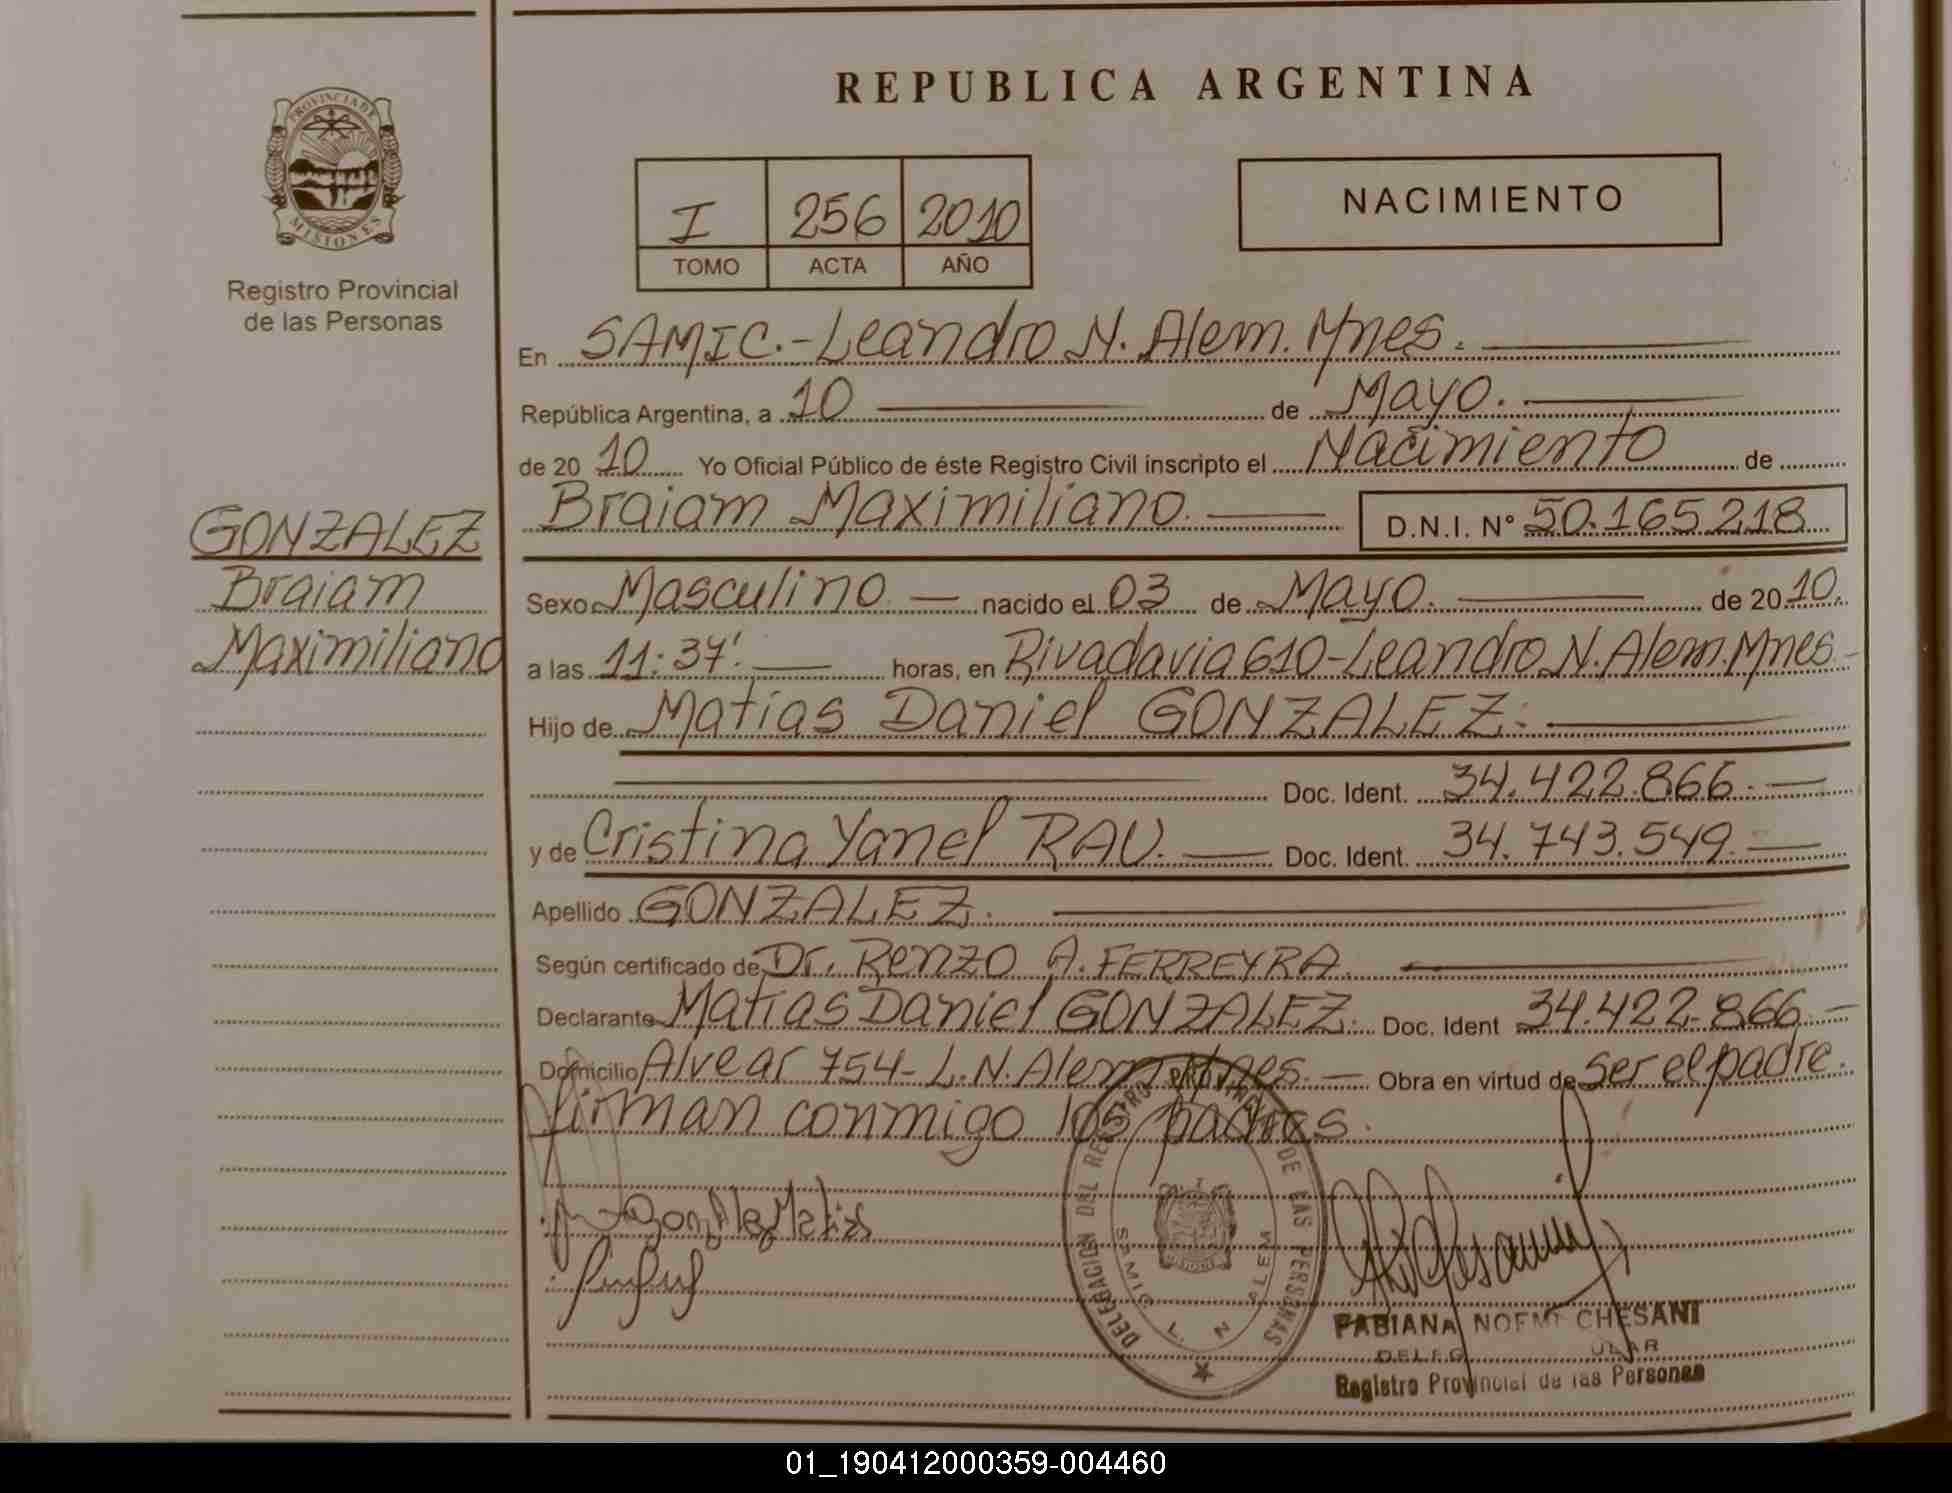 REPUBLICA ARGENTINA
PROVINCIA DE
MISIONES
Registro Provincial
de las Personas
I 256 2010
TOMO ACTA AÑO
NACIMIENTO
En SAMIC.-Leandro N. Alem. Mnes.
República Argentina, a 10 de Mayo.
de 20 10 Yo Oficial Público de éste Registro Civil inscripto el Nacimiento de
Braiam Maximiliano. D.N.I. N° 50.165.218
GONZALEZ
Braiam
Maximiliano
Sexo Masculino nacido el 03 de Mayo. de 20 10.
a las 11:37'. horas, en Rivadavia 610-Leandro N. Alem. Mnes-
Hijo de Matías Daniel GONZALEZ.
Doc. Ident. 34.422.866.
y de Cristina Yanel RAU. Doc. Ident. 34.743.549.
Apellido GONZALEZ.
Según certificado de Dr. Renzo A. FERREYRA.
Declarante Matías Daniel GONZALEZ. Doc. Ident 34.422.866.
Domicilio Alvear 754- L.N. Alem Mnes. Obra en virtud de ser el padre.
firman conmigo los padres.
Gonzalez Matias
DELEGACION DEL REGISTRO PROVINCIAL DE LAS PERSONAS
SAMIC L. N. ALEM
FABIANA NOEMI CHESANI
Registro Provincial de las Personas
01_190412000359-004460